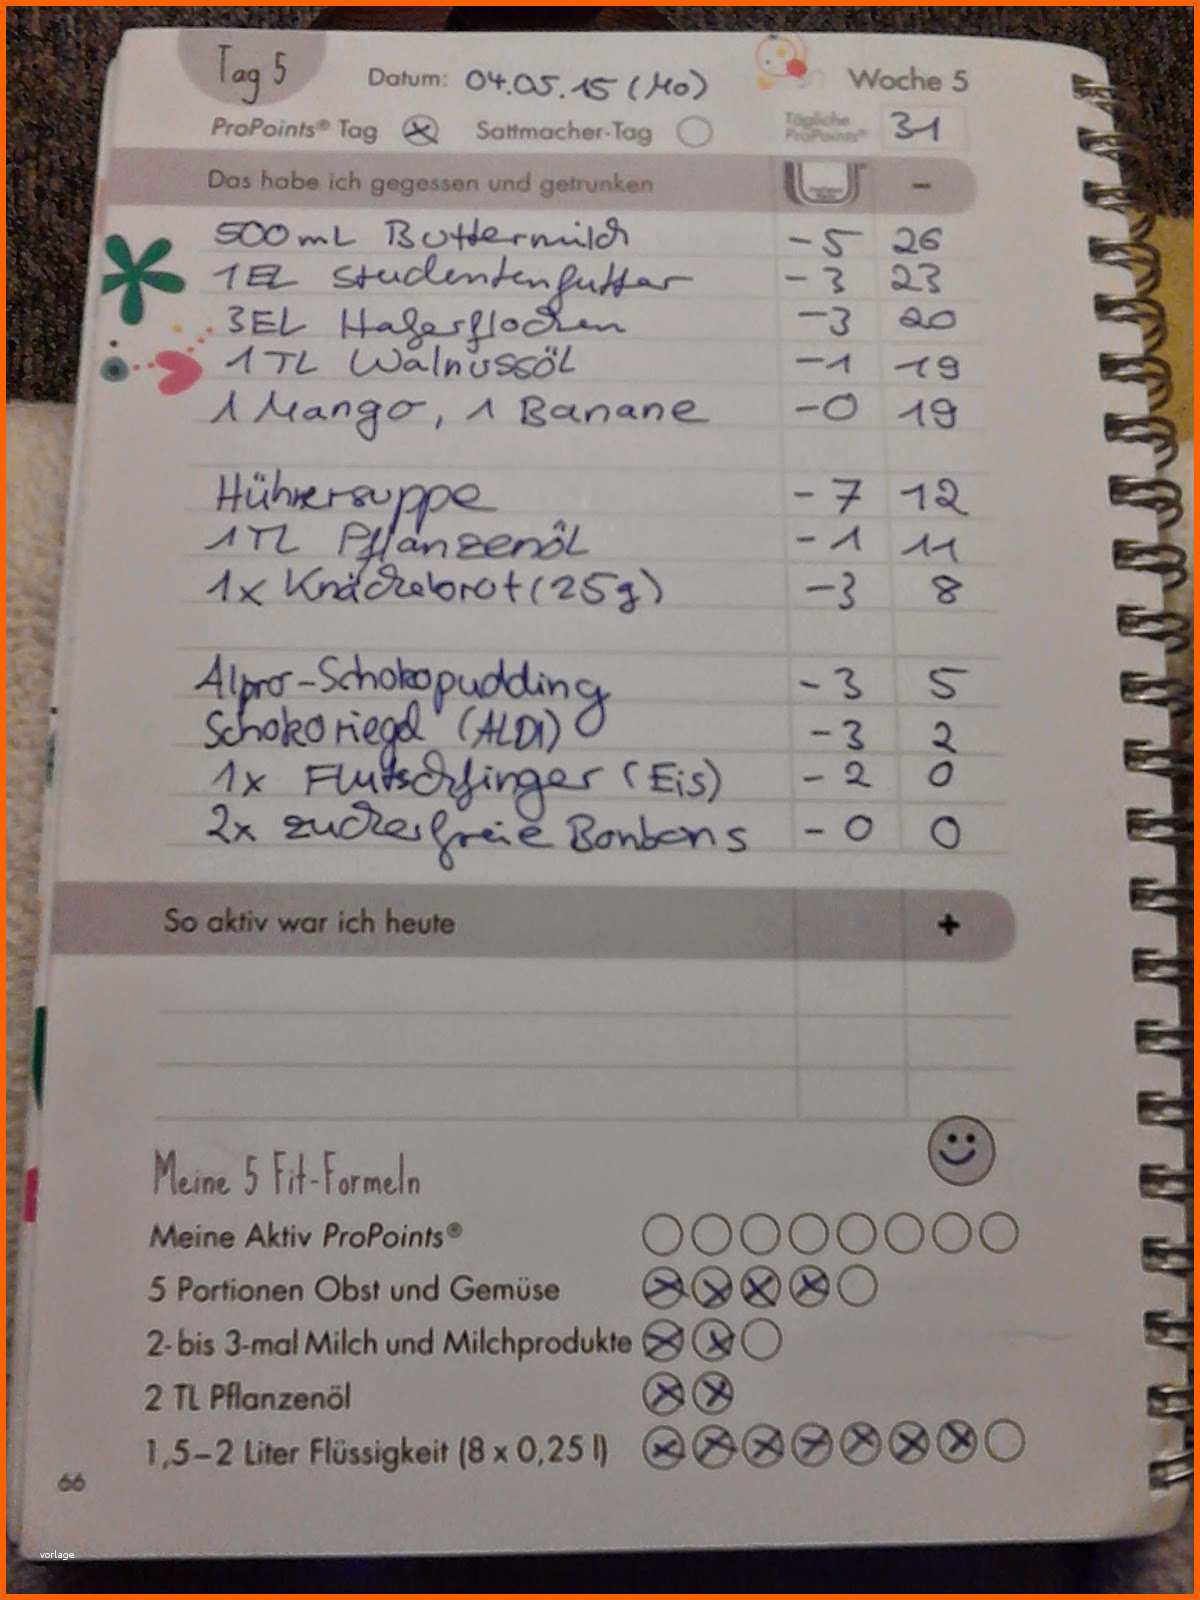 Tag 5 Datum: 04.05.15 (Mo) Woche 5
ProPoints® Tag Sattmacher-Tag Tägliche ProPoints® 31
Das habe ich gegessen und getrunken -
500mL Buttermilch -5 26
1EL Studentenfutter -3 23
3EL Haferflocken -3 20
1TL Walnussöl -1 19
1 Mango, 1 Banane -0 19
Hühnersuppe -7 12
1TL Pflanzenöl -1 11
1x Knäckebrot (25g) -3 8
Alpro-Schokopudding -3 5
Schokoriegel (ALDI) -3 2
1x Flutschfinger (Eis) -2 0
2x zuckerfreie Bonbons -0 0
So aktiv war ich heute +
Meine 5 Fit-Formeln
Meine Aktiv ProPoints®
5 Portionen Obst und Gemüse
2- bis 3-mal Milch und Milchprodukte
2 TL Pflanzenöl
1,5–2 Liter Flüssigkeit (8 x 0,25 l)
66
vorlage